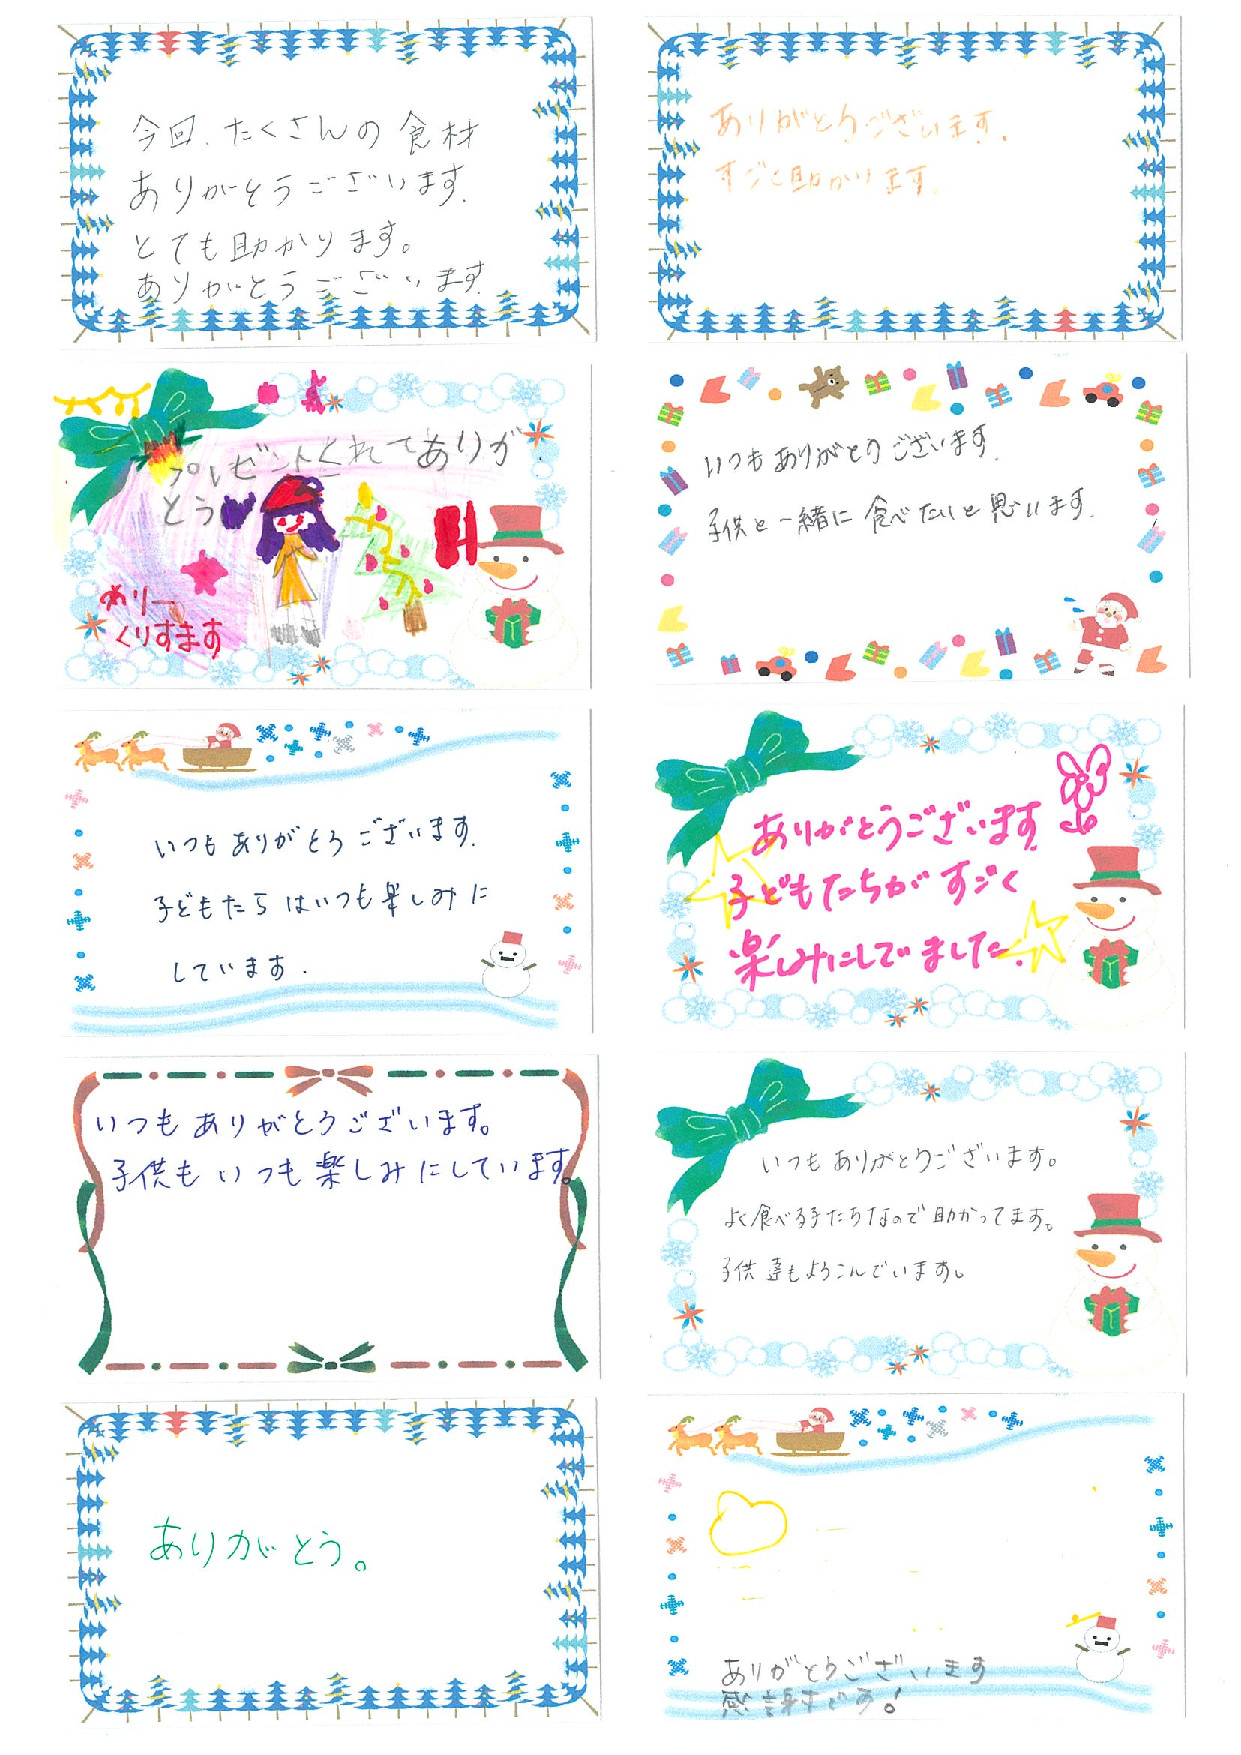 今回、たくさんの食材
ありがとうございます。
とても助かります。
ありがとうございます
ありがとうございます。
すごく助かります。
プレゼントくれてありが
とう
めりー
くりすます
いつもありがとうございます。
子供と一緒に食べたいと思います。
いつもありがとうございます。
子どもたちはいつも楽しみに
しています.
ありがとうございます
子どもたちがすごく
楽しみにしてました。
いつもありがとうございます。
子供もいつも楽しみにしています。
いつもありがとうございます。
よく食べる子たちなので助かってます。
子供達もよろこんでいます。
ありがとう。
ありがとうございます
感謝です!